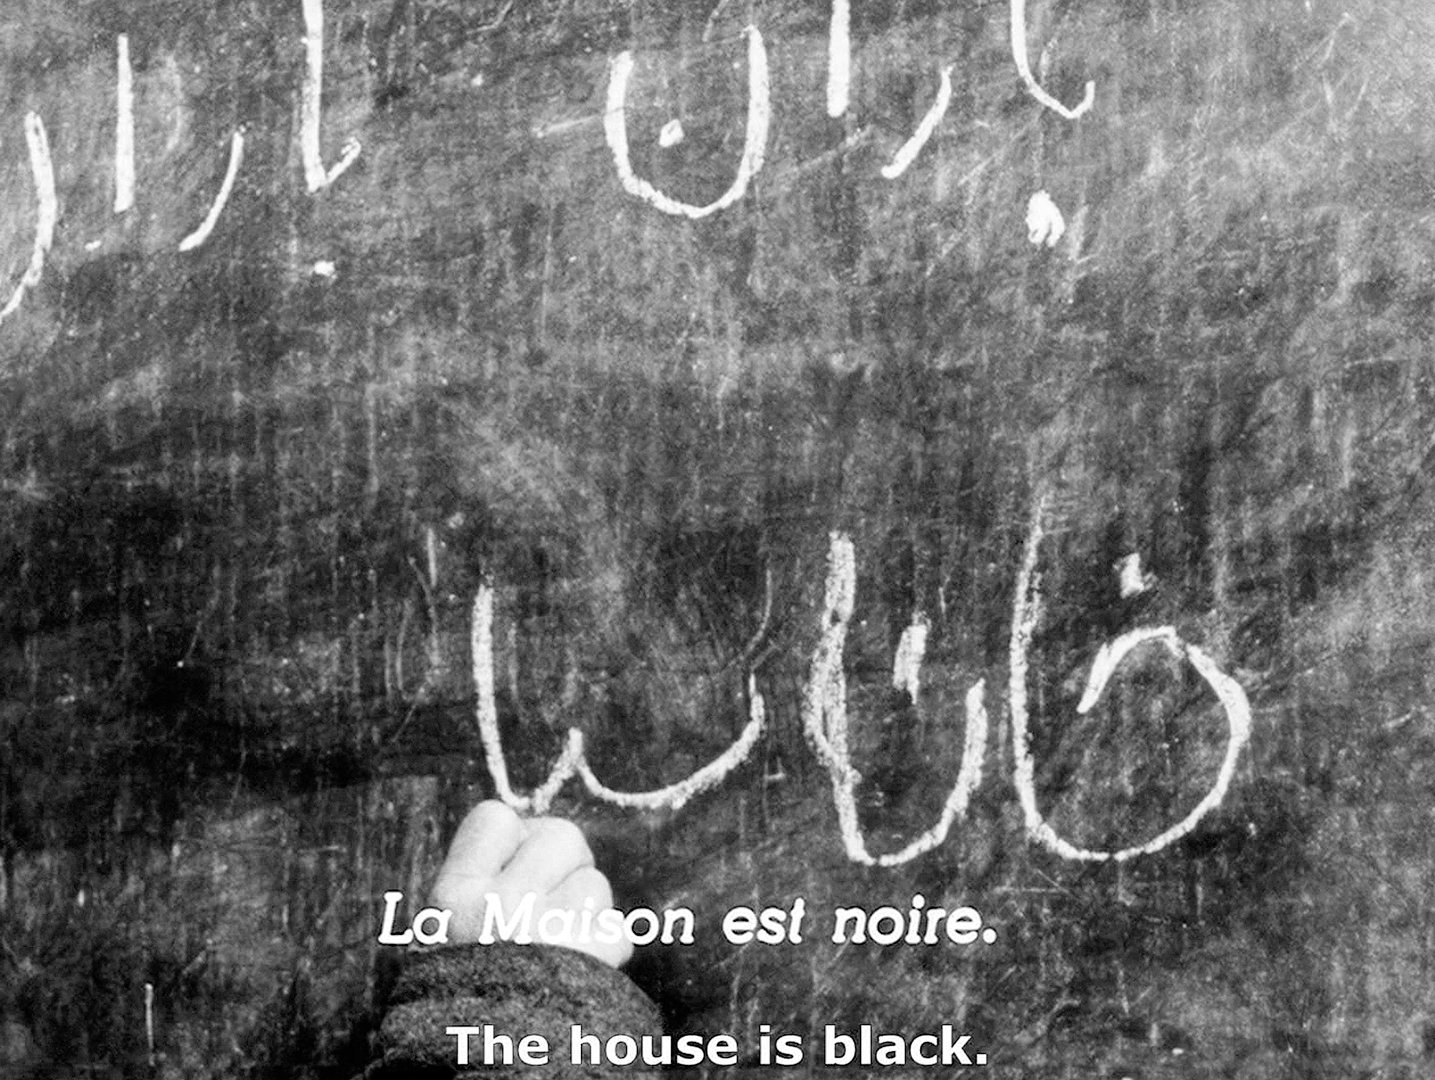 باران
خانه سیا
La Maison est noire.
The house is black.